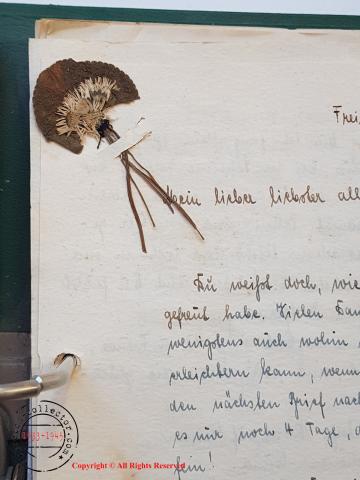 Frei
Mein lieber liebster all
Du weißt doch, wie
gefreut habe. Vielen Dan
wenigstens auch wohin
erleichtern kann, wenn
den nächsten Brief nach
es nur noch 4 Tage, d
fein!
Collector.com
1933-1945
Copyright © All Rights Reserved